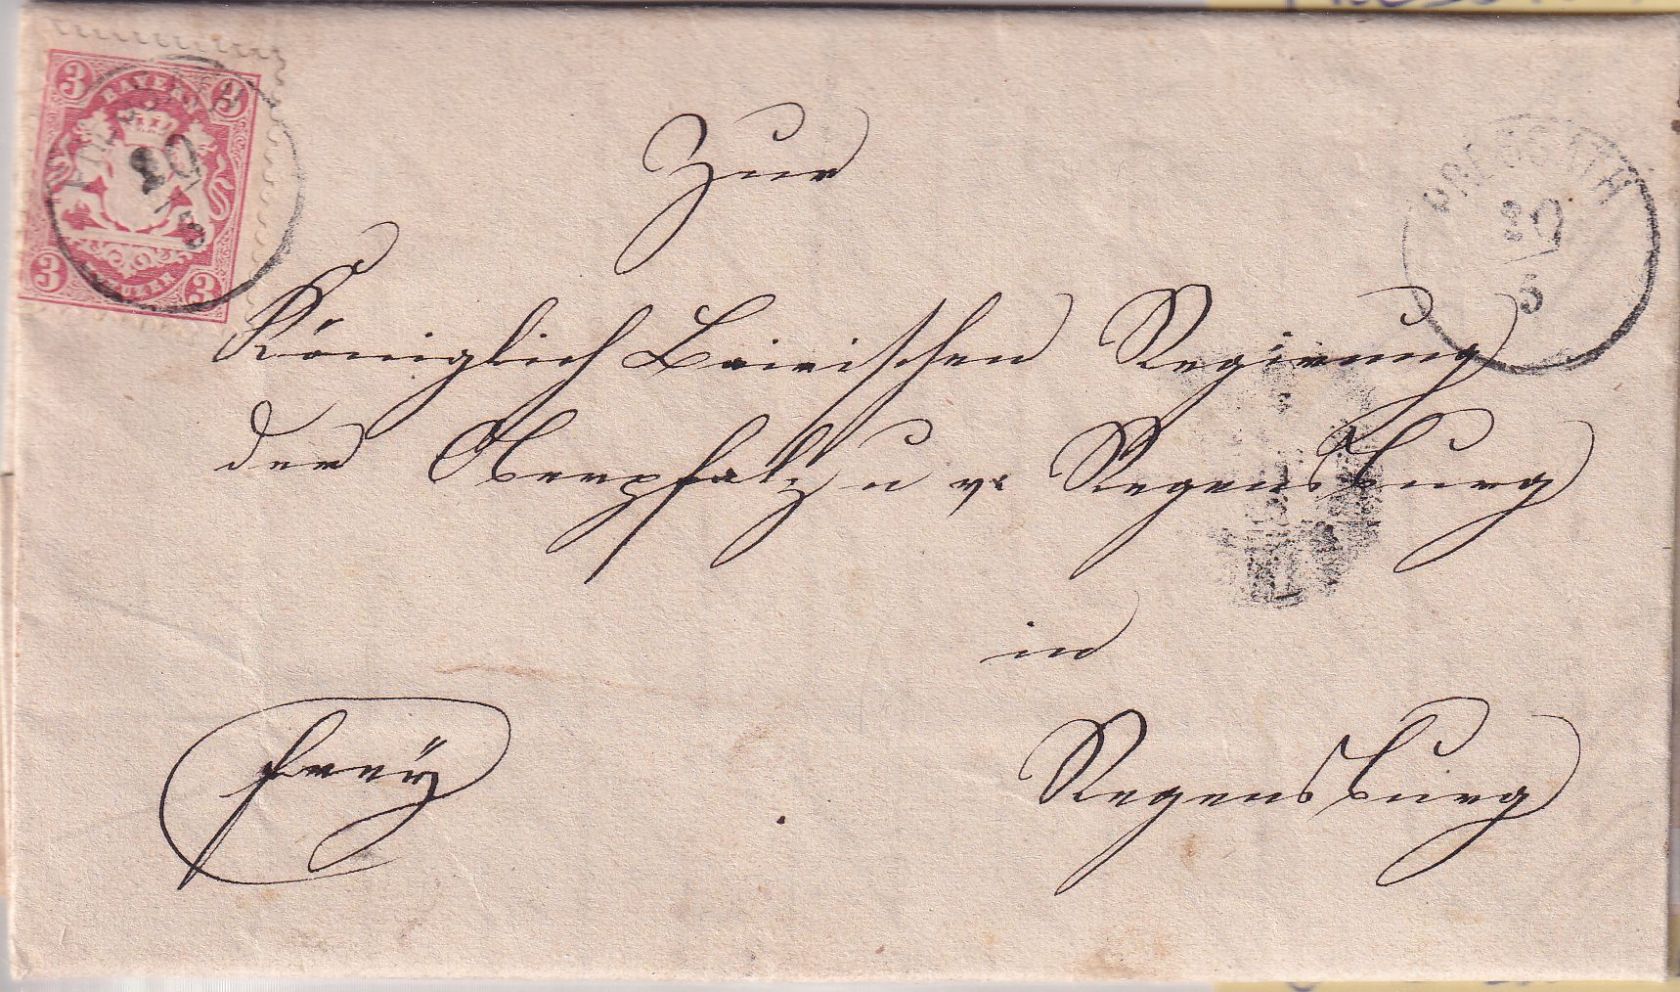 3 BAYERN 3
3 KREUZER 3
PRESSATH
20
5
PRESSATH
20
5
Zur
Königlich Bairischen Regierung
der Oberpfalz u v. Regensburg
in
Regensburg
frey